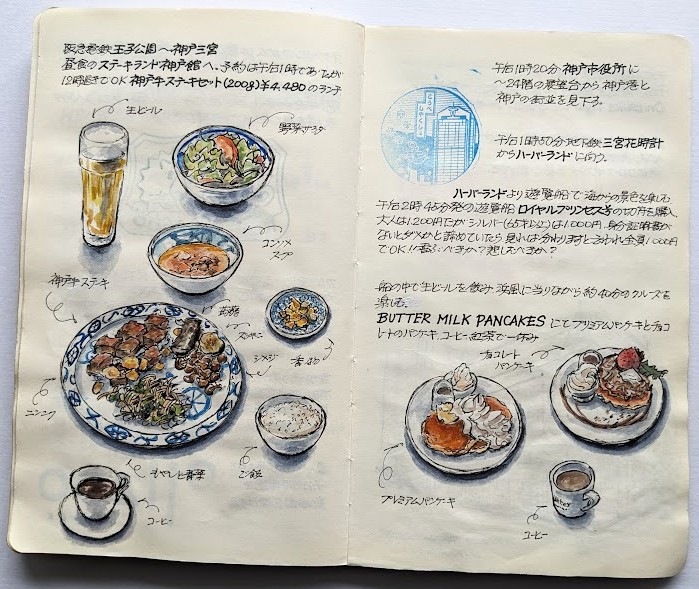 阪急電鉄 王子公園〜神戸三宮
昼食のステーキランド神戸館へ、予約は午后1時であったが
12時過ぎでOK 神戸牛ステーキセット(200g)¥4,480のランチ
生ビール
野菜サラダ
コンソメ
スープ
神戸牛ステーキ
蒟蒻
ズッキーニ
シメジ
香物
ニンニク
もやしと青菜
ご飯
コーヒー
午后1時20分 神戸市役所に
〜24階の展望台から神戸港と
神戸の街並を見下ろす。
午后1時50分 地下鉄 三宮花時計
からハーバーランドに向う。
ハーバーランドより遊覧船で海からの景色を楽しむ
午后2時45分発の遊覧船 ロイヤルプリンセス号の切符を購入
大人は1,200円だがシルバー(65才以上)は1,000円、身分証明書が
ないとダメかと諦めていたら 見れば分かりますと言われ全員1,000円
でOK!!喜ぶべきか?悲しむべきか?
船の中で生ビールを飲み 浜風に当りながら約40分のクルーズを
楽しむ。
BUTTER MILK PANCAKES にてプレミアムパンケーキとチョコ
レートのパンケーキ、コーヒー、紅茶で一休み
チョコレート
パンケーキ
プレミアムパンケーキ
コーヒー